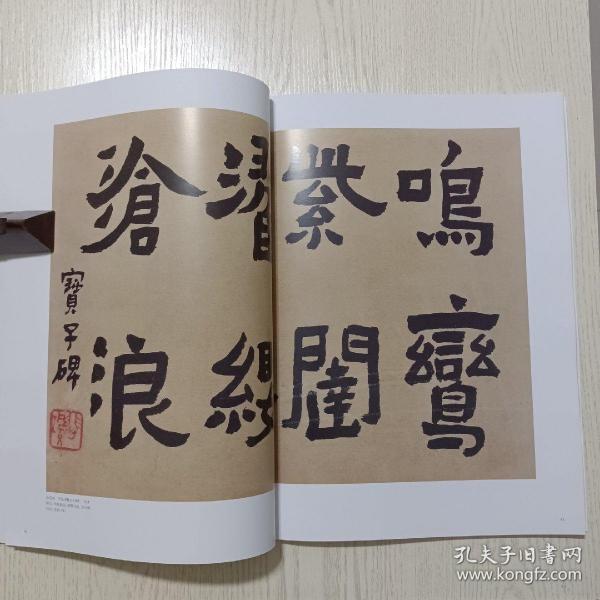 鳴鸞
紫闥
濯纓
滄浪
寶子碑
孔夫子旧书网
www.kongfz.com